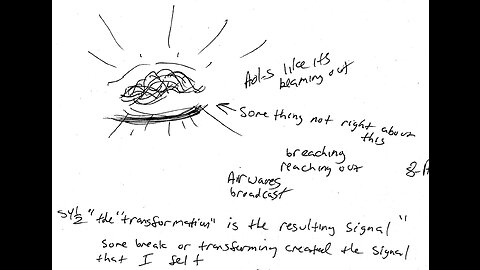 like it's
beaming out
Something not right about
this
breaching
reaching out
Airwaves
broadcast
"the "transformation" is the resulting signal"
some break or transforming created the signal
that I felt